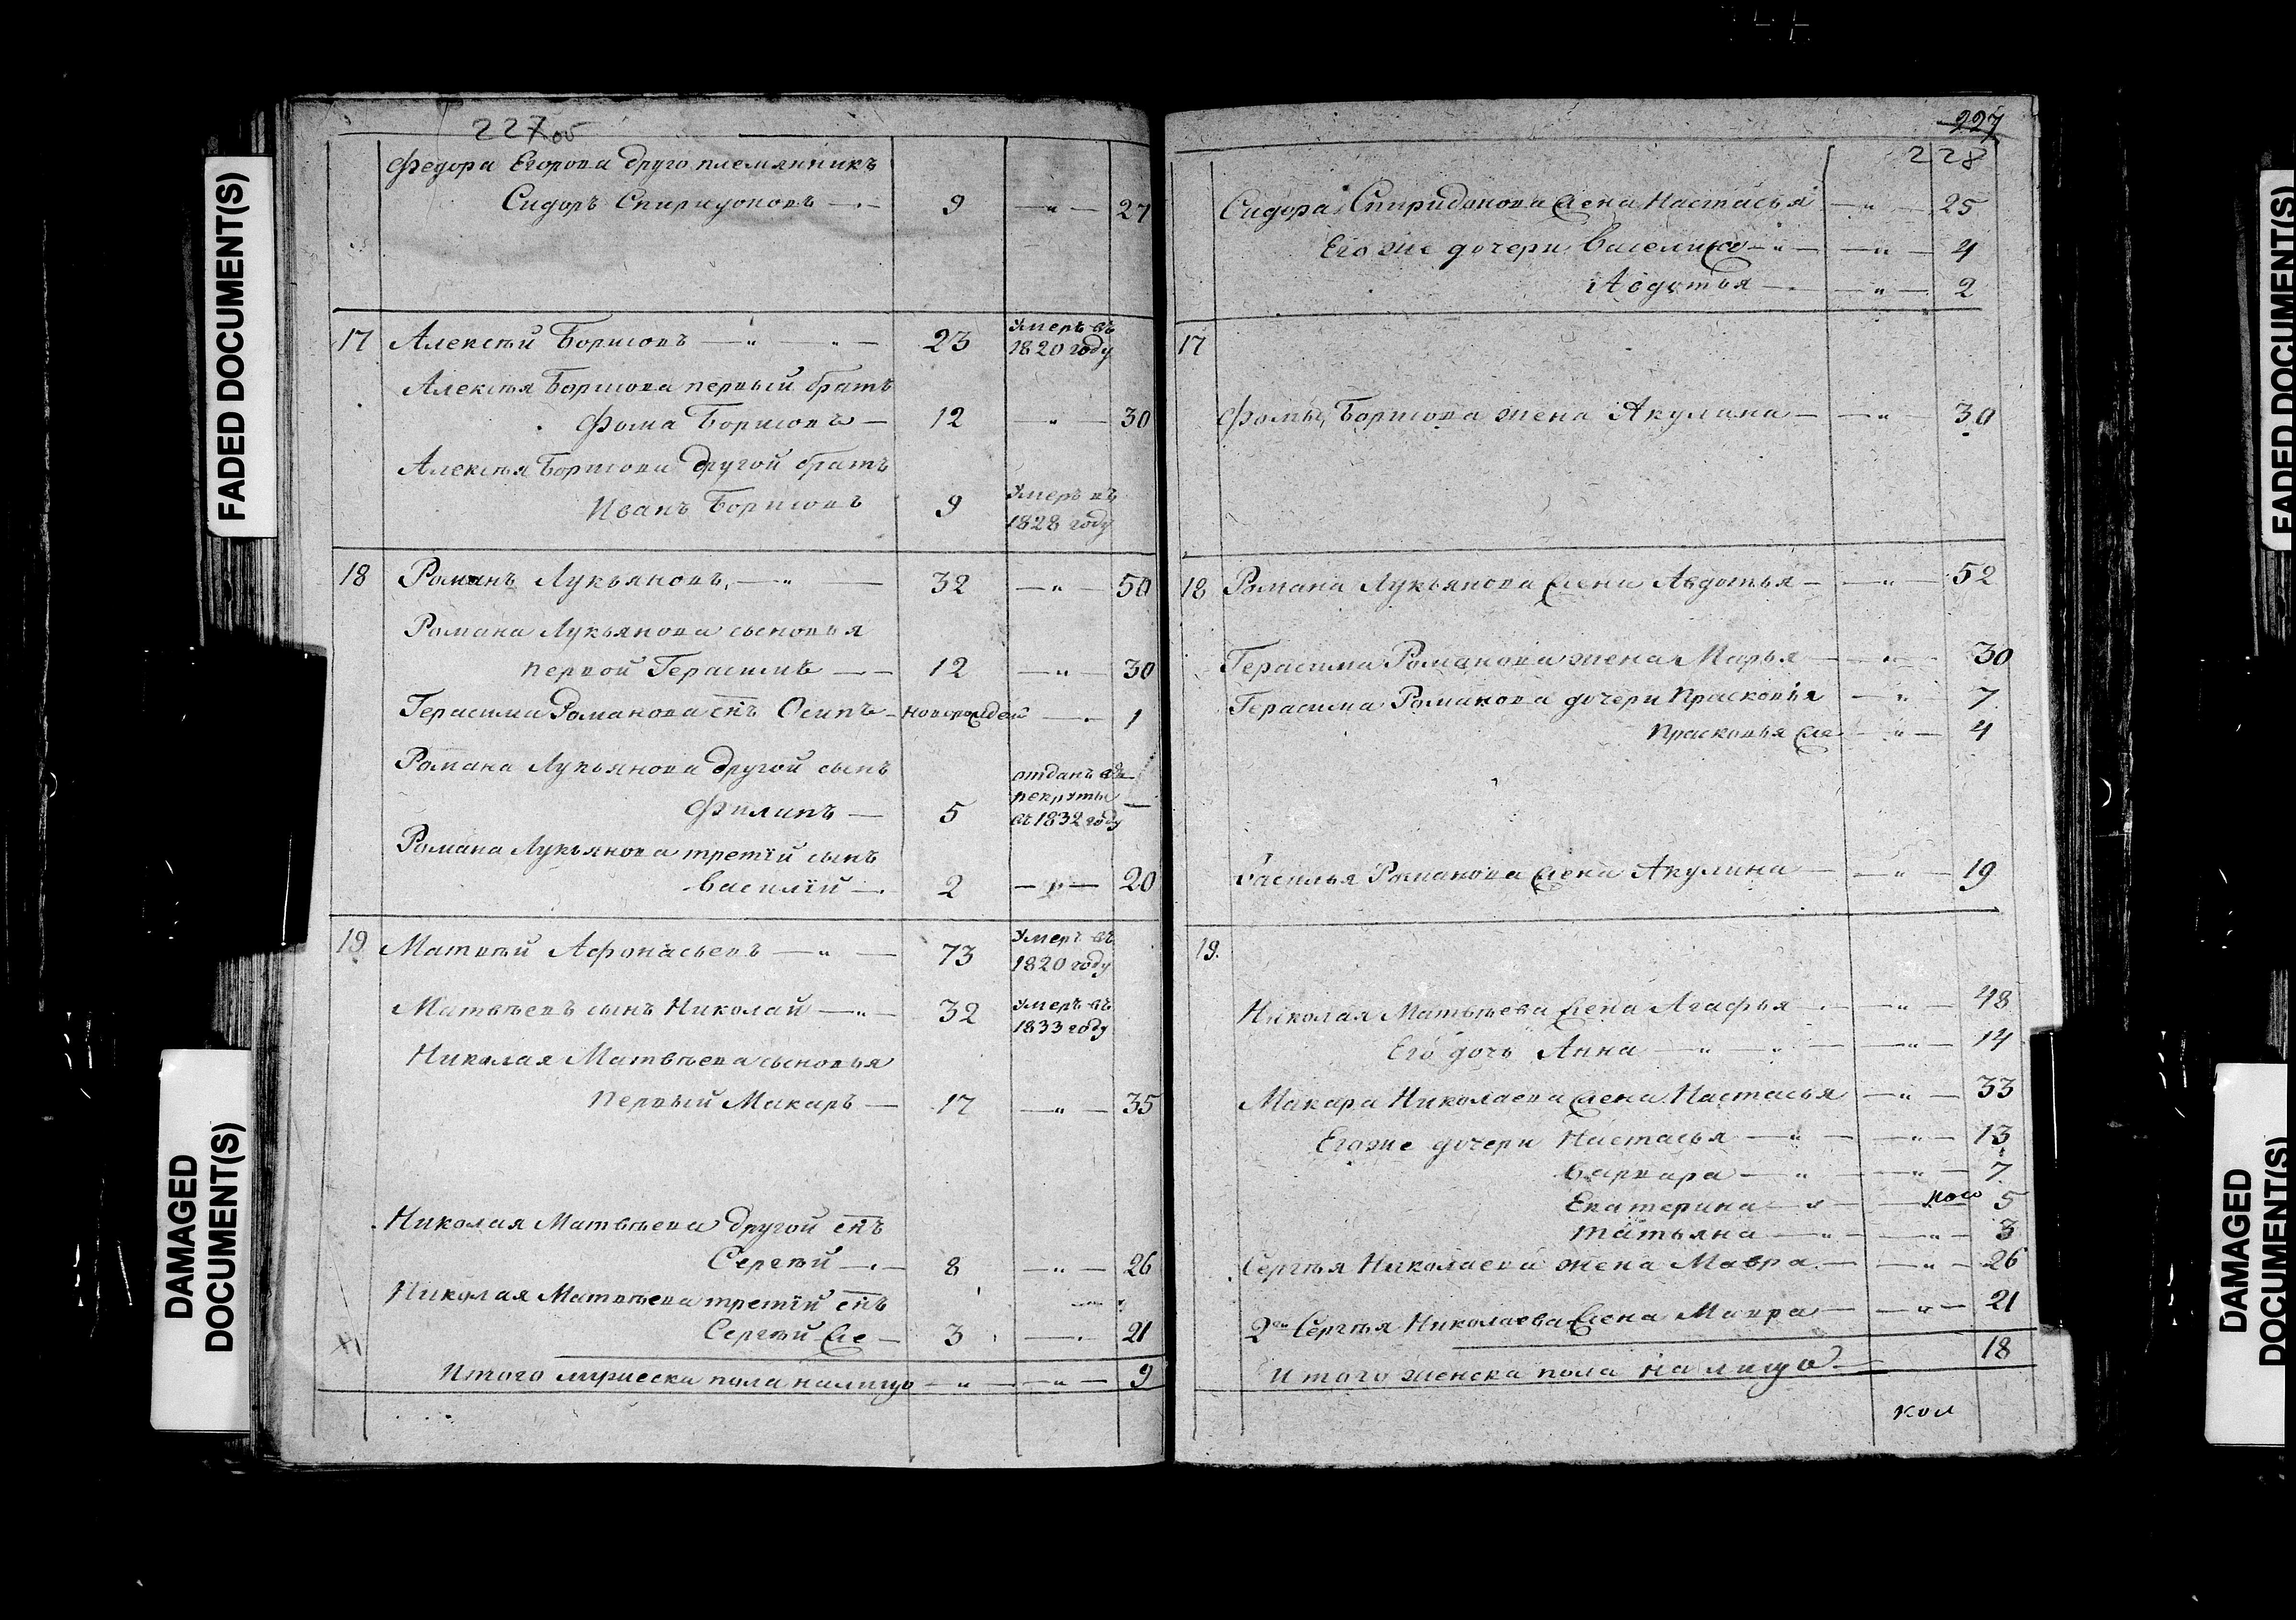 227 об
Федора Егорова друго племянникъ
Сидоръ Спиридоновъ — 9 — " — 27
17 Алексѣй Борисовъ — " — " — 23 Умеръ въ
1820 году
Алексѣя Борисова первый братъ
Фома Борисовъ — 12 — " — 30
Алексѣя Борисова другой братъ
Иванъ Борисовъ 9 Умеръ въ
1828 году
18 Романъ Лукьяновъ — " — 32 — " — 50
Романа Лукьянова сыновья
первой Герасимъ — 12 — " — 30
Герасима Романова снъ Осипъ — новорожден — " — 1
Романа Лукьянова другой сынъ
Филипъ — 5 отданъ въ
рекруты
въ 1832 году —
Романа Лукьянова третій сынъ
Василій — 2 — " — 20
19 Матвѣй Афонасьевъ — " — 73 Умеръ въ
1820 году
Матвѣевъ сынъ Николай — " — 32 Умеръ въ
1833 году
Николая Матвѣева сыновья
Первый Макаръ — 17 — " — 35
Николая Матвѣева другой снъ
Сергѣй — 8 — " — 26
Николая Матвѣева третій снъ
Сергѣй же — 3 — " — 21
Итого мужеска пола налицо — " — " — 9
227
228
Сидора Спиридонова жена Настасья — " — 25
Его же дочери Василиса — " — " — 4
Авдотья — " — 2
17
Фомы Борисова жена Акулина — " — 30
18 Романа Лукьянова жена Авдотья — " — 52
Герасима Романова жена Марья — " — 30
Герасима Романова дочери Прасковья — " — 7
Прасковья же — " — 4
Василья Романова жена Акулина — " — 19
19.
Николая Матвѣева жена Агафья — " — 48
Его дочь Анна — " — " — " — 14
Макара Николаева жена Настасья — " — 33
Егоже дочери Настасья — " — " — 13
Варвара — " — " — 7
Екатерина — " — 5
Татьяна — " — " — 3
Сергѣя Николаева жена Мавра — " — 26
2го Сергѣя Николаева жена Мавра — " — 21
Итого женска пола на лицо — 18
кол
FADED DOCUMENT(S)
DAMAGED
DOCUMENT(S)
FADED DOCUMENT(S)
DAMAGED
DOCUMENT(S)